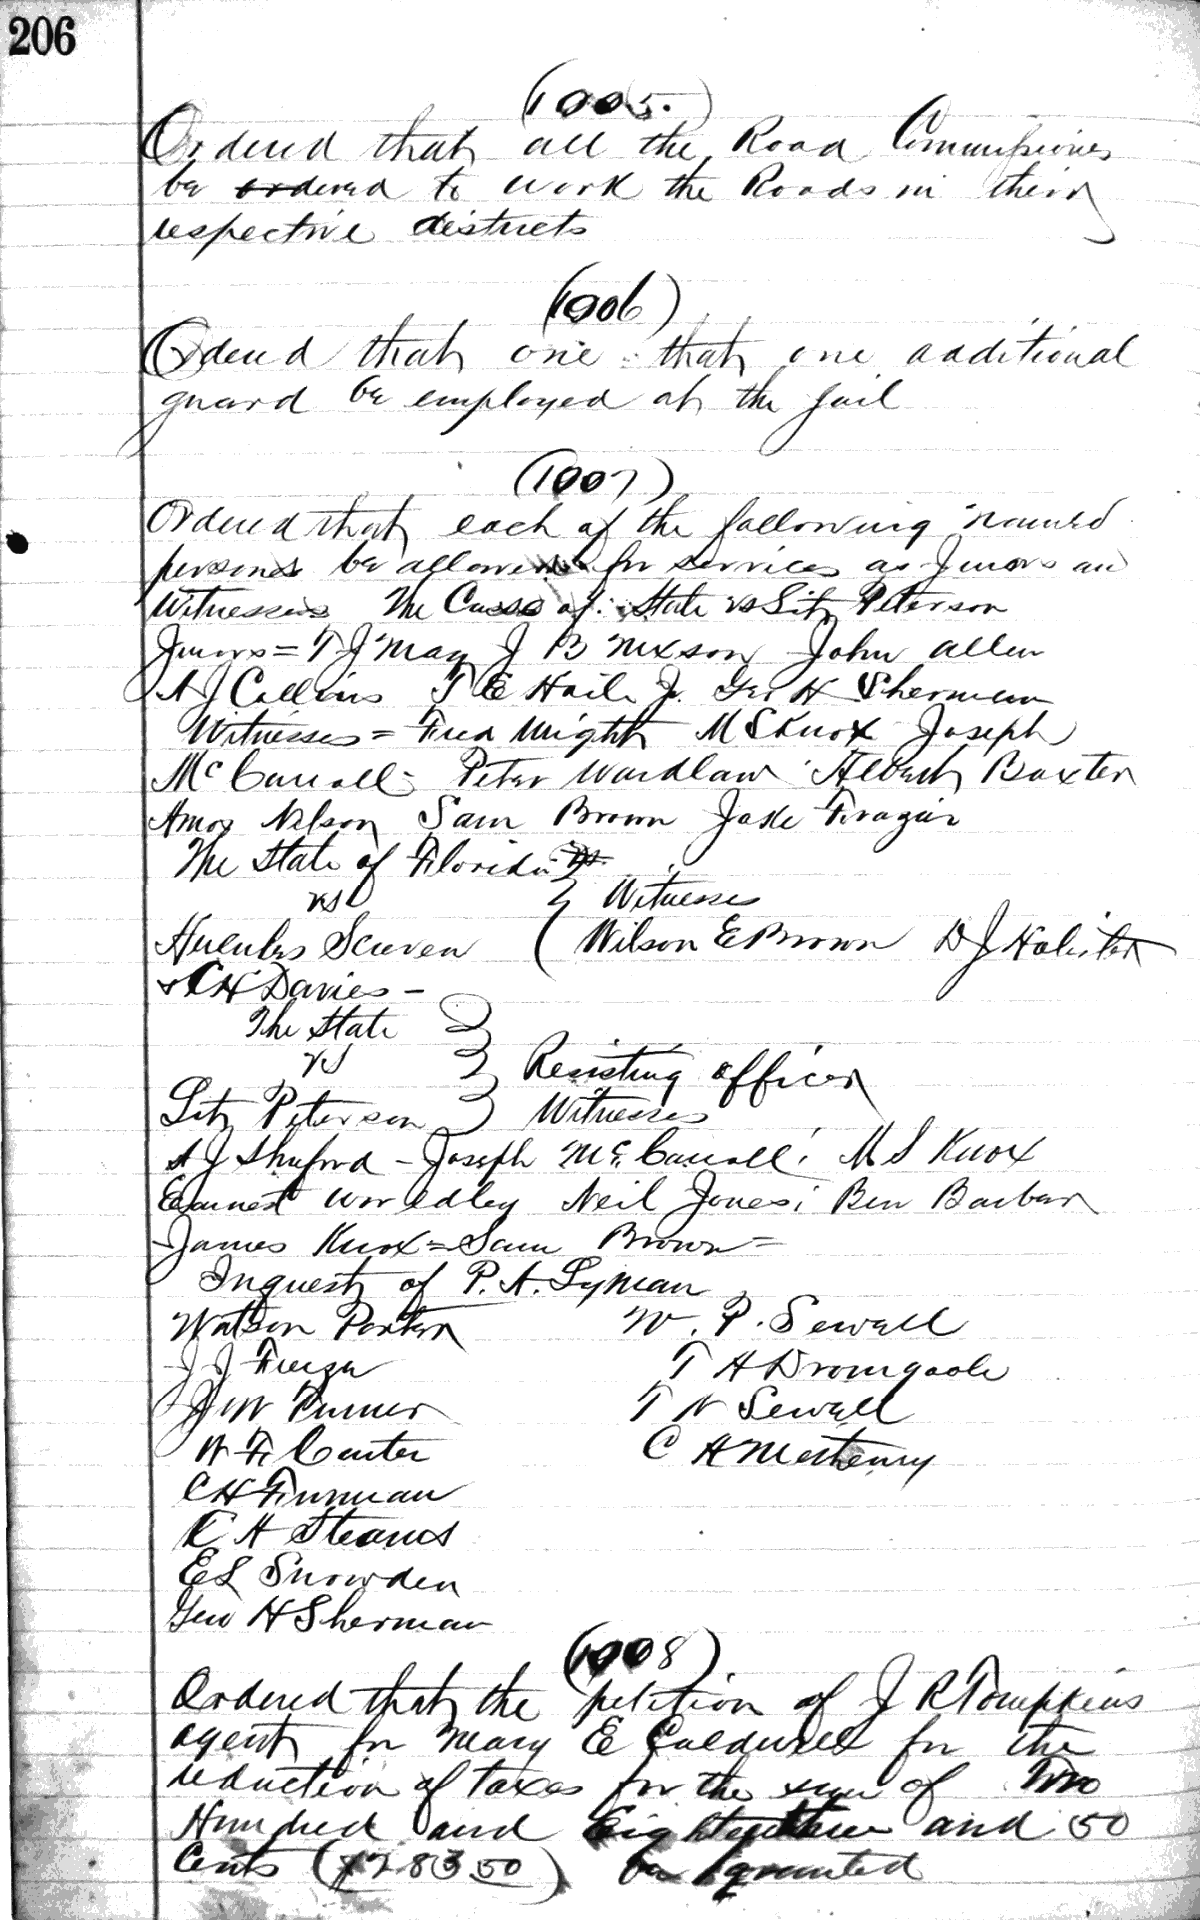 206
(1005.)
Ordered that all the Road Commissiones
be ordered to work the Roads in their
respective districts
(1006)
Orderd that one that one additional
guard be employed at the Jail
(1007)
Ordered that each of the following named
persons be allowed for services as Jurors an
Witnesses The Case of State vs Litz Peterson
Jurors = T J May J B Nixson John Allen
A J Collins T E Haile Jr. Geo H Sherman
Witnesses = Fred Wright M S Knox Joseph
McCarroll - Peter Wardlaw Albert Baxter
Amos Nelson Sam Brown Jake Frazier
The State of Florida
vs } Witnesses
Hercules Scriven ( Wilson E Brown D J Holister
& C H Davies -
The State
vs } Resisting officer
Litz Peterson } Witnesses
A J Shuford - Joseph McCarroll M S Knox
Earnest Worldley Neil Jones; Ben Barber
James Knox = Sam Brown =
Inquest of P. A. Lyman
Watson Porter W. P. Sewall
J J T H Dromgoole
J W Turner T N Sewall
W F Carter C H McHenry
C H Furman
K H Steams
E L Snowden
Geo H Sherman
(1008)
Ordered that the petition of J R Tompkins
agent for Mary E Caldwell for the
reduction of taxes for the sum of Two
Hundred and and 50
Cents ($283 50) be granted